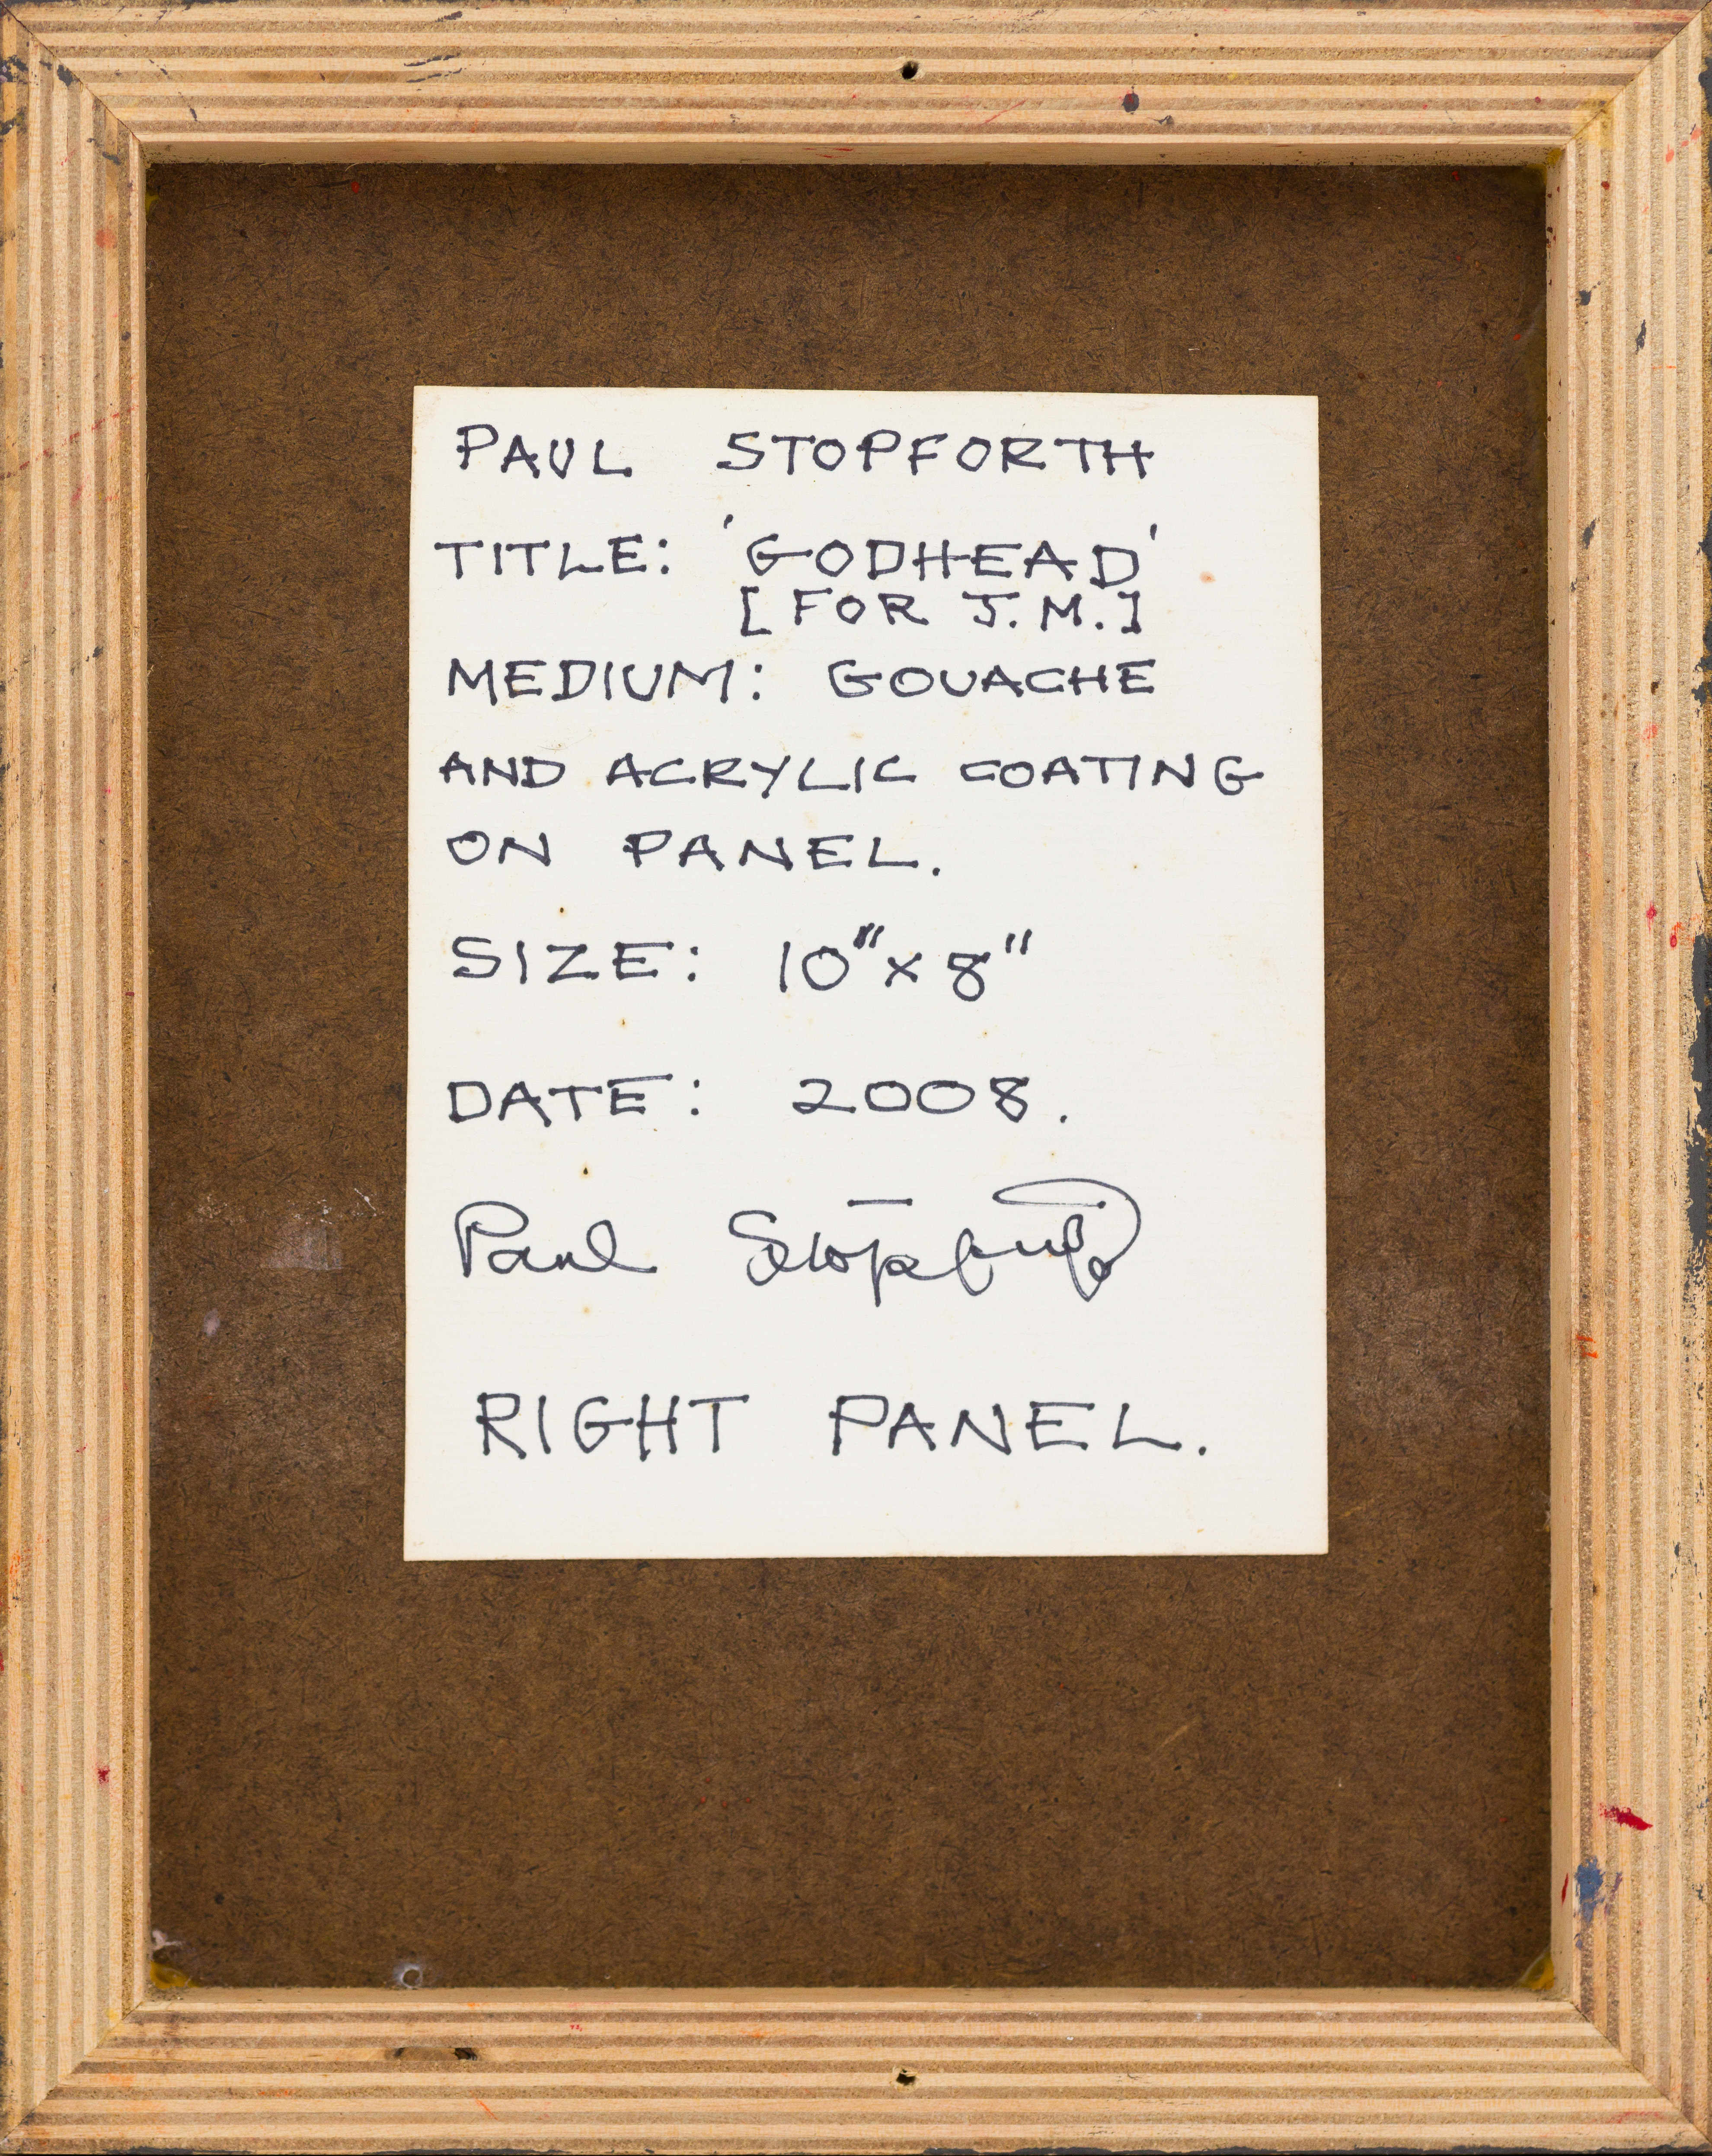 PAUL STOPFORTH
TITLE: 'GODHEAD'
[FOR J.M.]
MEDIUM: GOUACHE
AND ACRYLIC COATING
ON PANEL.
SIZE: 10" x 8"
DATE: 2008.
Paul Stopforth
RIGHT PANEL.